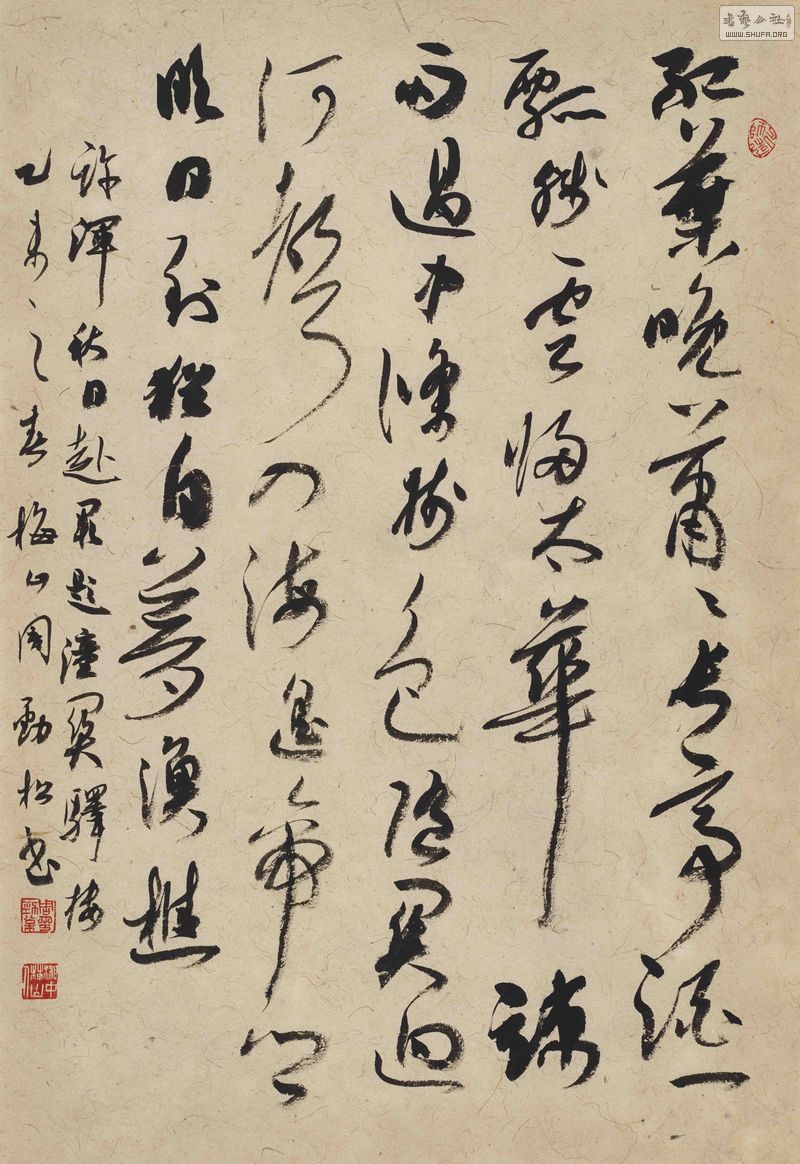 書藝公社
WWW.SHUFA.ORG
紅葉晚蕭〻長亭酒一
瓢殘雲歸太華疎
雨過中條樹色隨關迥
河聲入海遥帝鄉
明日到猶自夢漁樵
許渾秋日赴闕題潼關驛樓
乙未之春梅山周勁松書